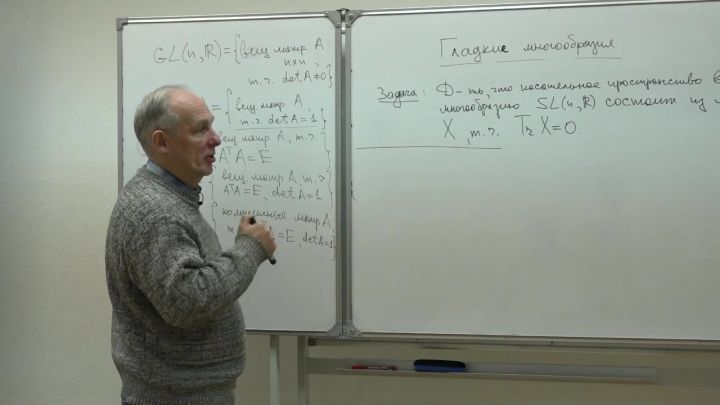 GL(n,ℝ)={вещ. матр A
n×n,
т.ч. det A≠0}
={вещ. матр A,
т.ч. det A=1}
вещ. матр A, т.ч.
AᵀA=E
вещ. матр A, т.ч.
AᵀA=E, det A=1
комплексные матр A,
=E, det A=1}
Гладкие многообразия.
Задача: Д-ть, что касательное пространство в
многообразию SL(n,ℝ) состоит из
X, т.ч. Tr X=0.